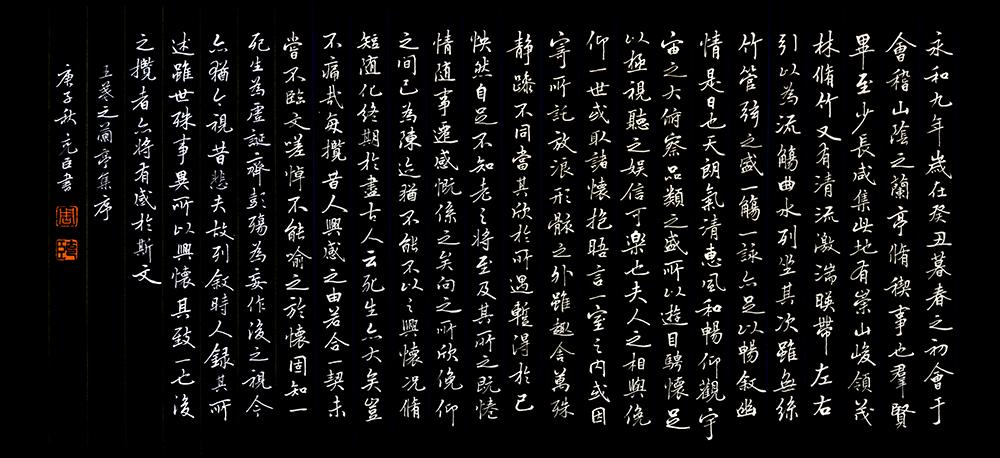 永和九年歲在癸丑暮春之初會于
會稽山陰之蘭亭脩稧事也羣賢
畢至少長咸集此地有崇山峻領茂
林脩竹又有清流激湍暎帶左右
引以為流觴曲水列坐其次雖無絲
竹管弦之盛一觴一詠亦足以暢敘幽
情是日也天朗氣清惠風和暢仰觀宇
宙之大俯察品類之盛所以遊目騁懷足
以極視聽之娛信可樂也夫人之相與俛
仰一世或取諸懷抱晤言一室之內或因
寄所託放浪形骸之外雖趣舍萬殊
靜躁不同當其欣於所遇暫得於己
怏然自足不知老之將至及其所之既惓
情隨事遷感慨係之矣向之所欣俛仰
之間已為陳迹猶不能不以之興懷況脩
短隨化終期於盡古人云死生亦大矣豈
不痛哉每攬昔人興感之由若合一契未
嘗不臨文嗟悼不能喻之於懷固知一
死生為虛誕齊彭殤為妄作後之視今
亦猶今視昔悲夫故列敘時人錄其所
述雖世殊事異所以興懷其致一也後
之攬者亦將有感於斯文
王羲之蘭亭集序
庚子秋元臣書